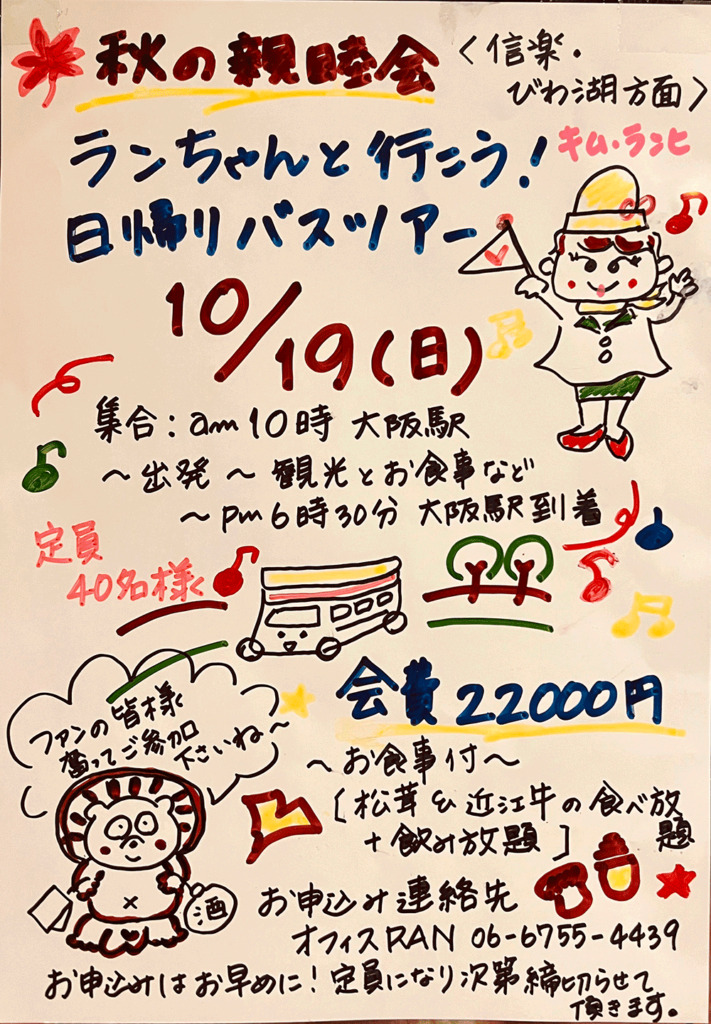 秋の親睦会
〈信楽・
びわ湖方面〉
ランちゃんと行こう!
キム・ランヒ
日帰りバスツアー
10/19(日)
集合:am10時 大阪駅
〜出発〜観光とお食事など
〜pm6時30分 大阪駅到着
定員
40名様く
会費22000円
ファンの皆様
奮ってご参加
下さいね〜
〜お食事付〜
[松茸&近江牛の食べ放題
+飲み放題]
酒
お申込み連絡先
オフィスRAN 06-6755-4439
お申込みはお早めに!定員になり次第締切らせて
頂きます。